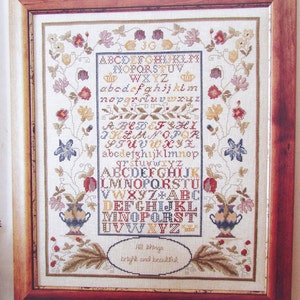 JG
ABCDEFGHIJKLM
NOPQRSTU
VWXYZ
abcdefghijklm
nopqrstuvwxyz
ABCDEFGHI
JKLMNOPQR
STUVWXYZ
abcdefghijklm
nopqrstu
vwxyz
ABCDEFGHIJK
LMNOPQRSTU
VWXYZ ABC
DEFGHIJKL
MNOPQRST
UVWXYZ
All things
bright and beautiful